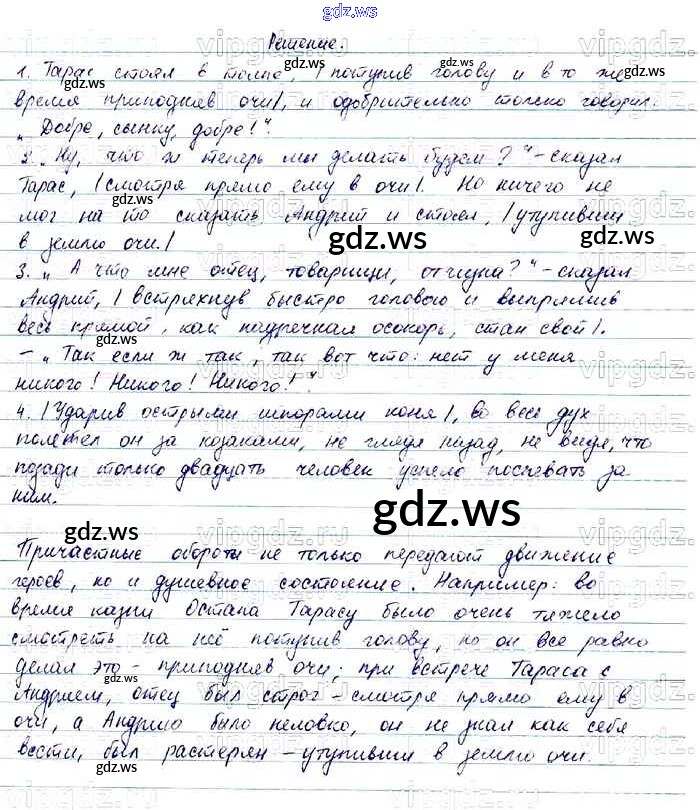 gdz.ws
Решение.
1. Тарас стоял в толпе, |потупив голову и в то же
время приподняв очи|, и одобрительно только говорил:
„Добре, сынку, добре!“.
2. „Ну, что ж теперь мы делать будем?“ - сказал
Тарас, |смотря прямо ему в очи|. Но ничего не
мог на то сказать Андрий и стоял, |утупивши
в землю очи.|
3. „А что мне отец, товарищи, отчизна?“ - сказал
Андрий, |встряхнув быстро головою и выпрямив
весь прямой, как надречная осокорь, стан свой|.
- „Так если ж так, так вот что: нет у меня
никого! Никого! Никого!“.
4. |Ударив острыми шпорами коня|, во весь дух
полетел он за козаками, не глядя назад, не видя, что
позади только двадцать человек успело поспевать за
ним.
Причастные обороты не только передают движение
героев, но и душевное состояние. Например: во
время казни Остапа Тарасу было очень тяжело
смотреть на неё потупив голову, но он все равно
делал это - приподняв очи; при встрече Тараса с
Андрием, отец был строг - смотря прямо ему в
очи, а Андрию было неловко, он не знал как себя
вести, был растерян - утупивши в землю очи.